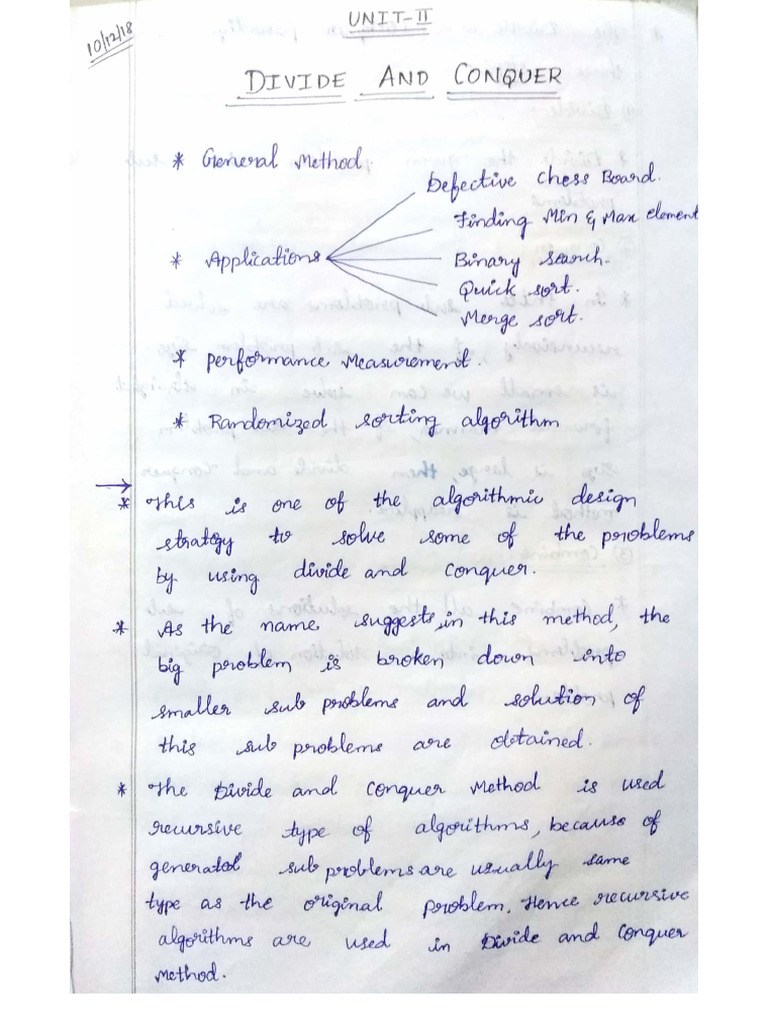 10/12/18
UNIT-II
DIVIDE AND CONQUER
* General Method.
Defective Chess Board.
Finding Min & Max element
* Applications
Binary search.
Quick sort.
Merge sort.
* Performance Measurement.
* Randomized sorting algorithm
* This is one of the algorithmic design
strategy to solve some of the problems
by using divide and conquer.
* As the name suggests, in this method, the
big problem is broken down into
smaller sub problems and solution of
this sub problems are obtained.
* The Divide and Conquer Method is used
recursive type of algorithms, because of
generated sub problems are usually same
type as the original problem. Hence recursive
algorithms are used in Divide and Conquer
Method.